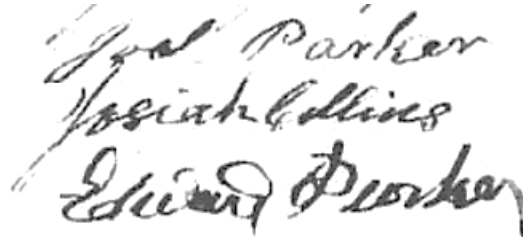 Joel Parker
Josiah Collins
Edward Parker